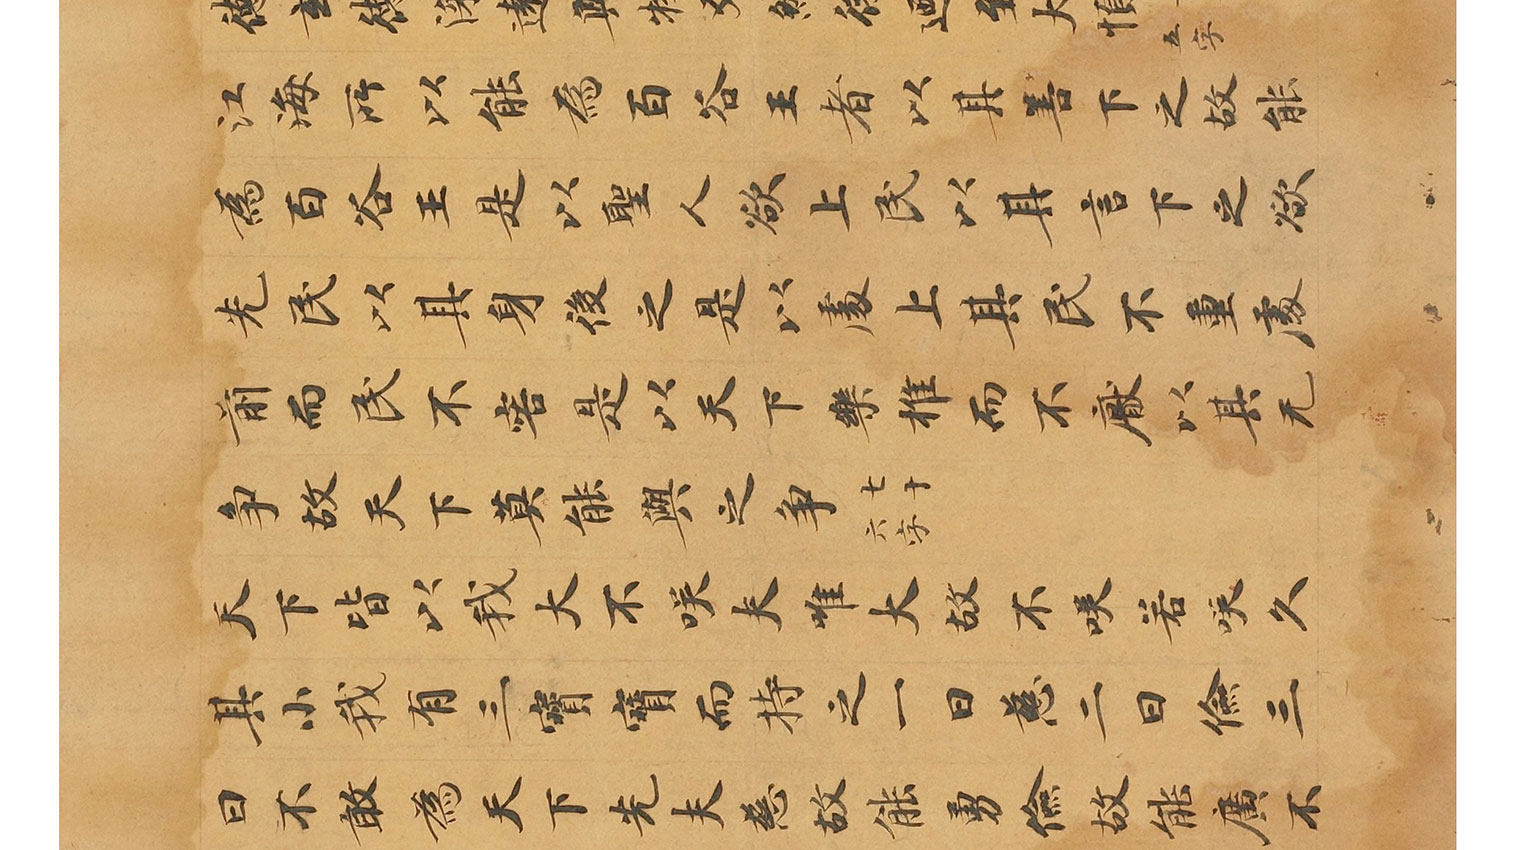 德玄德深遠與物反然後迺至大順五字
江海所以能為百谷王者以其善下之故能
為百谷王是以聖人欲上民以其言下之欲
先民以其身後之是以處上其民不重處
前而民不害是以天下樂推而不厭以其无
爭故天下莫能與之爭七十六字
天下皆以我大不咲夫唯大故不咲若咲久
其小我有三寶寶而持之一曰慈二曰儉三
曰不敢為天下先夫慈故能勇儉故能廣不